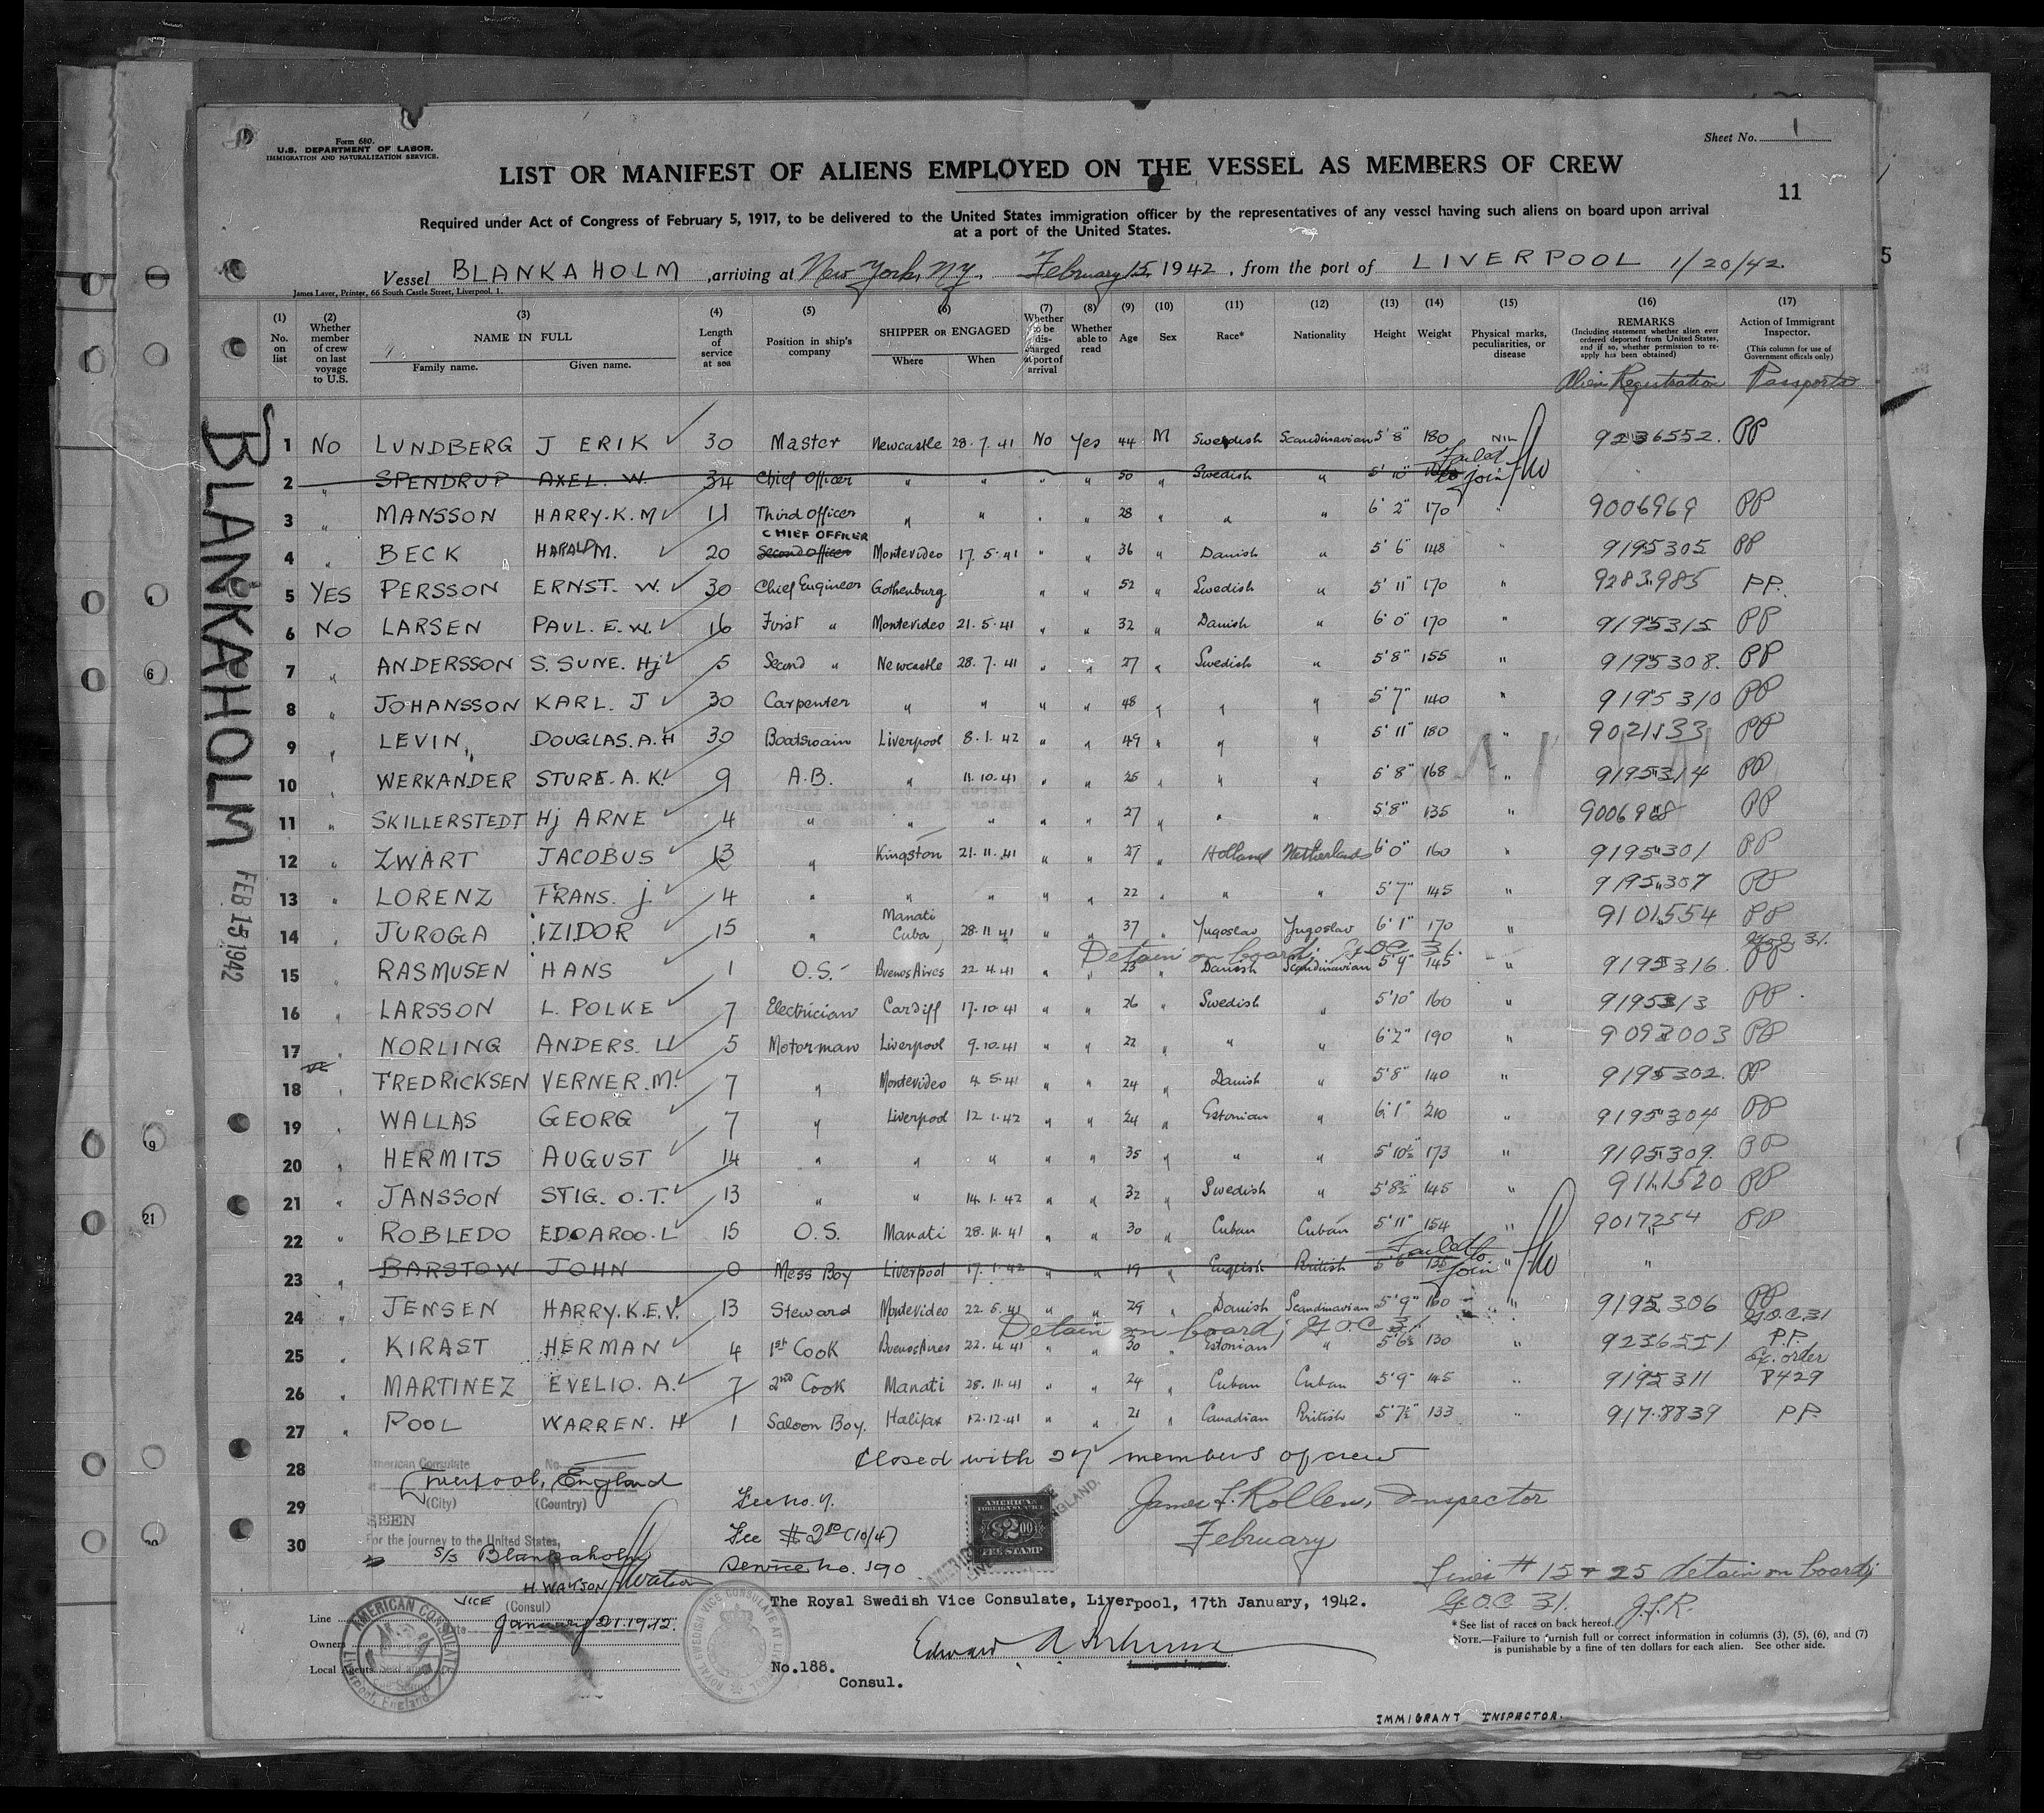 Form 680.
U.S. DEPARTMENT OF LABOR.
IMMIGRATION AND NATURALIZATION SERVICE.
Sheet No. 1
LIST OR MANIFEST OF ALIENS EMPLOYED ON THE VESSEL AS MEMBERS OF CREW
11
Required under Act of Congress of February 5, 1917, to be delivered to the United States immigration officer by the representatives of any vessel having such aliens on board upon arrival
at a port of the United States.
Vessel BLANKAHOLM, arriving at New York, NY. February 15 1942, from the port of LIVERPOOL 1/20/42
5
James Laver, Printer, 66 South Castle Street, Liverpool. 1.
(1) No. on list
(2) Whether member of crew on last voyage to U.S.
(3) NAME IN FULL Family name. Given name.
(4) Length of service at sea
(5) Position in ship's company
(6) SHIPPER OR ENGAGED Where When
(7) Whether to be discharged at port of arrival
(8) Whether able to read
(9) Age
(10) Sex
(11) Race*
(12) Nationality
(13) Height
(14) Weight
(15) Physical marks, peculiarities, or disease
(16) REMARKS (Including statement whether alien ever ordered deported from United States, and if so, whether permission to re-apply has been obtained)
Alien Registration
(17) Action of Immigrant Inspector. (This column for use of Government officials only)
Passports
BLANKAHOLM FEB 15 1942
1 NO LUNDBERG J ERIK 30 Master Newcastle 28.7.41 No Yes 44 M Swedish Scandinavian 5' 8" 180 NIL 9236552. PP
2 " SPENDRUP AXEL. W. 34 Chief Officer " " " " 50 " Swedish " 5' 10" Failed to join
3 " MANSSON HARRY. K. M 11 Third Officer " " " " 28 " " " 6' 2" 170 " 9006969 PP
CHIEF OFFICER
4 " BECK HARALD M. 20 Second Officer Montevideo 17.5.41 " " 36 " Danish " 5' 6" 148 " 9195305 PP
5 YES PERSSON ERNST. W. 30 Chief Engineer Gothenburg " " 52 " Swedish " 5' 11" 170 " 9283985 PP.
6 NO LARSEN PAUL. E. W. 16 First " Montevideo 21.5.41 " " 32 " Danish " 6' 0" 170 " 9195315 PP
7 " ANDERSSON S. SUNE. Hj 5 Second " Newcastle 28.7.41 " " 27 " Swedish " 5' 8" 155 " 9195308. PP
8 " JOHANSSON KARL. J 30 Carpenter " " " " 48 " " " 5' 7" 140 " 9195310 PP
9 " LEVIN, DOUGLAS. A. H 30 Boatswain Liverpool 8.1.42 " " 49 " " " 5' 11" 180 " 9021133 PP
10 " WERKANDER STURE. A. K. 9 A.B. " 11.10.41 " " 25 " " " 5' 8" 168 " 9195314 PP
11 " SKILLERSTEDT Hj ARNE 4 " " " " " 27 " " " 5' 8" 135 " 9006968 PP
12 " ZWART JACOBUS 13 " Kingston 21.11.41 " " 27 " Holland Netherlands 6' 0" 160 " 9195301 PP
13 " LORENZ FRANS. J. 4 " " " " " 22 " " " 5' 7" 145 " 9195307 PP
14 " JUROGA IZIDOR 15 " Manati Cuba, 28.11.41 " " 37 " Yugoslav Yugoslav 6' 1" 170 " 9101554 PP
Detain on board; G.O.C. 31. G.O.C. 31.
15 " RASMUSEN HANS 1 O.S. Buenos Aires 22.4.41 " " 23 " Danish Scandinavian 5' 9" 145 " 9195316.
16 " LARSSON L. POLKE 7 Electrician Cardiff 17.10.41 " " 26 " Swedish " 5' 10" 160 " 9195313 PP.
17 " NORLING ANDERS. U 5 Motorman Liverpool 9.10.41 " " 22 " " " 6' 2" 190 " 9092003 PP
18 " FREDRICKSEN VERNER. M. 7 " Montevideo 4.5.41 " " 24 " Danish " 5' 8" 140 " 9195302. PP
19 " WALLAS GEORG 7 " Liverpool 12.1.42 " " 24 " Estonian " 6' 1" 210 " 9195304 PP
20 " HERMITS AUGUST 14 " " " " " 35 " " " 5' 10½" 173 " 9195309. PP
21 " JANSSON STIG. O. T. 13 " " 14.1.42 " " 32 " Swedish " 5' 8½" 145 " 9111520 PP
22 " ROBLEDO EDOAROO. L 15 O.S. Manati 28.11.41 " " 30 " Cuban Cuban 5' 11" 154 " 9017254 PP
23 " BARSTOW JOHN 0 Mess Boy Liverpool 17.1.42 " " 19 " English British 5' 6" 125 Failed to join " "
24 " JENSEN HARRY. K. E. V. 13 Steward Montevideo 22.5.41 " " 29 " Danish Scandinavian 5' 9" 160 " 9195306 PP
Detain on board; G.O.C 31. G.O.C. 31
25 " KIRAST HERMAN 4 1st Cook Buenos Aires 22.4.41 " " 30 " Estonian " 5' 6½ 130 " 9236551 P.P.
Ex. order
26 " MARTINEZ EVELIO. A. 7 2nd Cook Manati 28.11.41 " " 24 " Cuban Cuban 5' 9" 145 " 9195311 8429
27 " POOL WARREN. H 1 Saloon Boy. Halifax 12.12.41 " " 21 " Canadian British 5' 7½" 133 " 917.8839 P.P.
28 Closed with 27 members of crew
American Consulate No.
Liverpool, England
(City) (Country)
29 Fee No. 7. James F. Rollen, Inspector
SEEN
For the journey to the United States,
30 Fee $2.00 (10/4) February
AMERICAN FOREIGN SERVICE $2.00 FEE STAMP
S/S Blankaholm
Service No. 190
H. WATSON H Watson
VICE (Consul)
Lines # 15 + 25 detain on board;
G.O.C 31. J.F.R.
The Royal Swedish Vice Consulate, Liverpool, 17th January, 1942.
Line
January 21. 1942.
Owners
Local Agents
AMERICAN CONSULATE Liverpool, England
ROYAL SWEDISH VICE CONSULATE AT LIVERPOOL
Edward
No.188.
Consul.
* See list of races on back hereof.
NOTE.—Failure to furnish full or correct information in columns (3), (5), (6), and (7)
is punishable by a fine of ten dollars for each alien. See other side.
IMMIGRANT INSPECTOR.
6
19
21